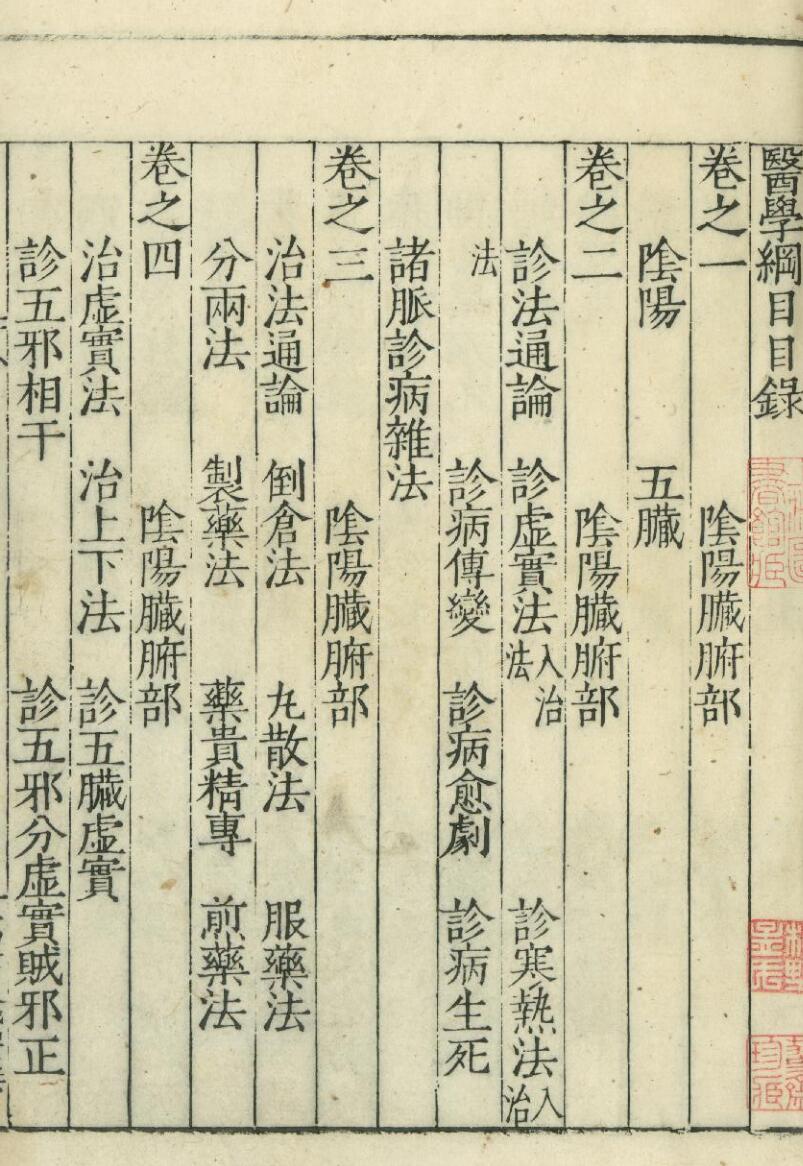 醫學綱目目錄
卷之一　陰陽臟腑部
陰陽　五臟
卷之二　陰陽臟腑部
診法通論　診虛實法入治法　診寒熱法入治
法　診病傳變　診病愈劇　診病生死
諸脈診病雜法
卷之三　陰陽臟腑部
治法通論　倒倉法　丸散法　服藥法
分兩法　製藥法　藥貴精專　煎藥法
卷之四　陰陽臟腑部
治虛實法　治上下法　診五臟虛實
診五邪相干　診五邪分虛實賊邪正